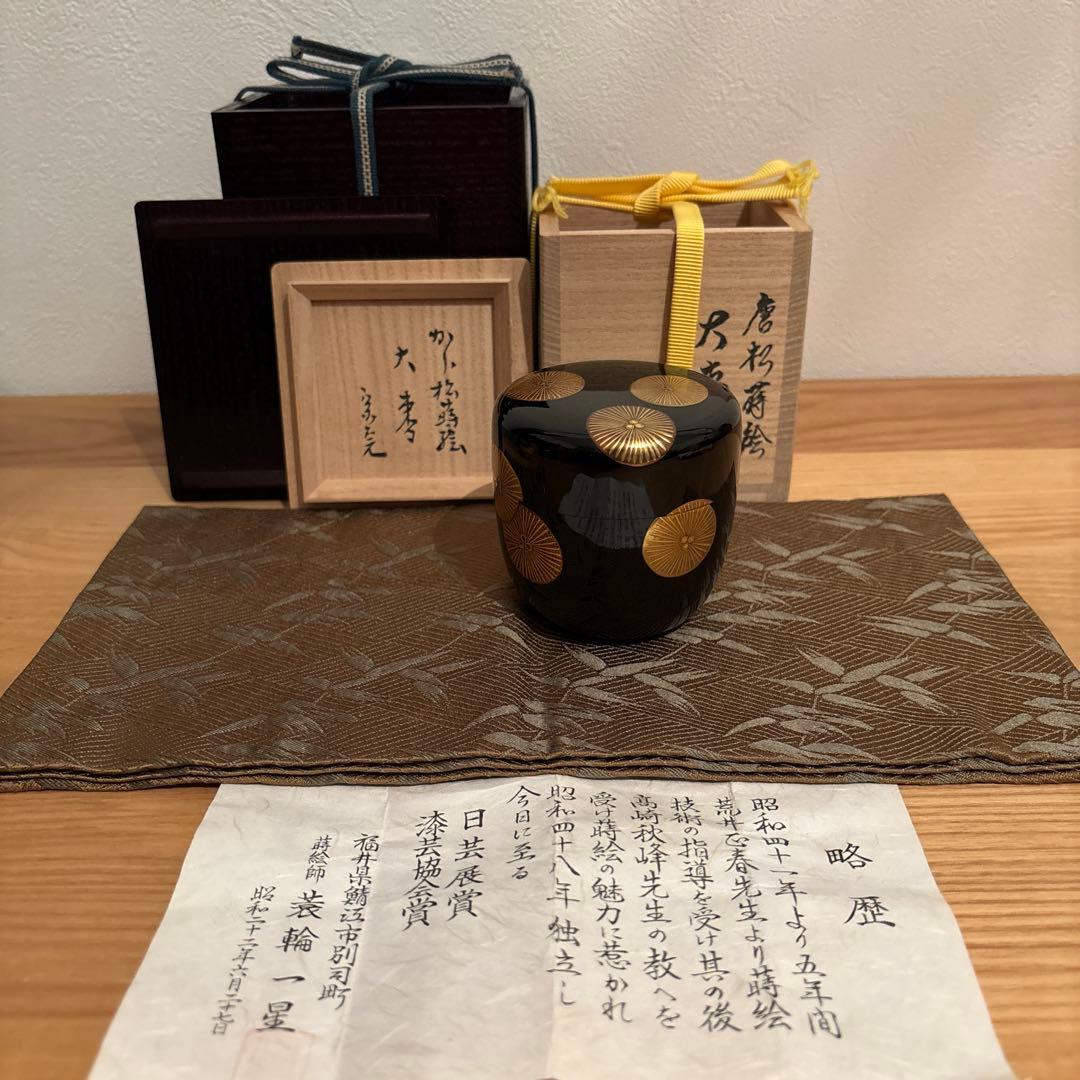 唐松蒔絵
大棗
から松蒔絵
大棗
略歴
昭和四十一年より五年間
荒井正春先生より蒔絵
技術の指導を受け其の後
高崎秋峰先生の教へを
受け蒔絵の魅力に惹かれ
昭和四十八年独立し
今日に至る
日芸展賞
漆芸協会賞
福井県鯖江市別司町
蒔絵師 蓑輪一星
昭和二十二年六月二十七日